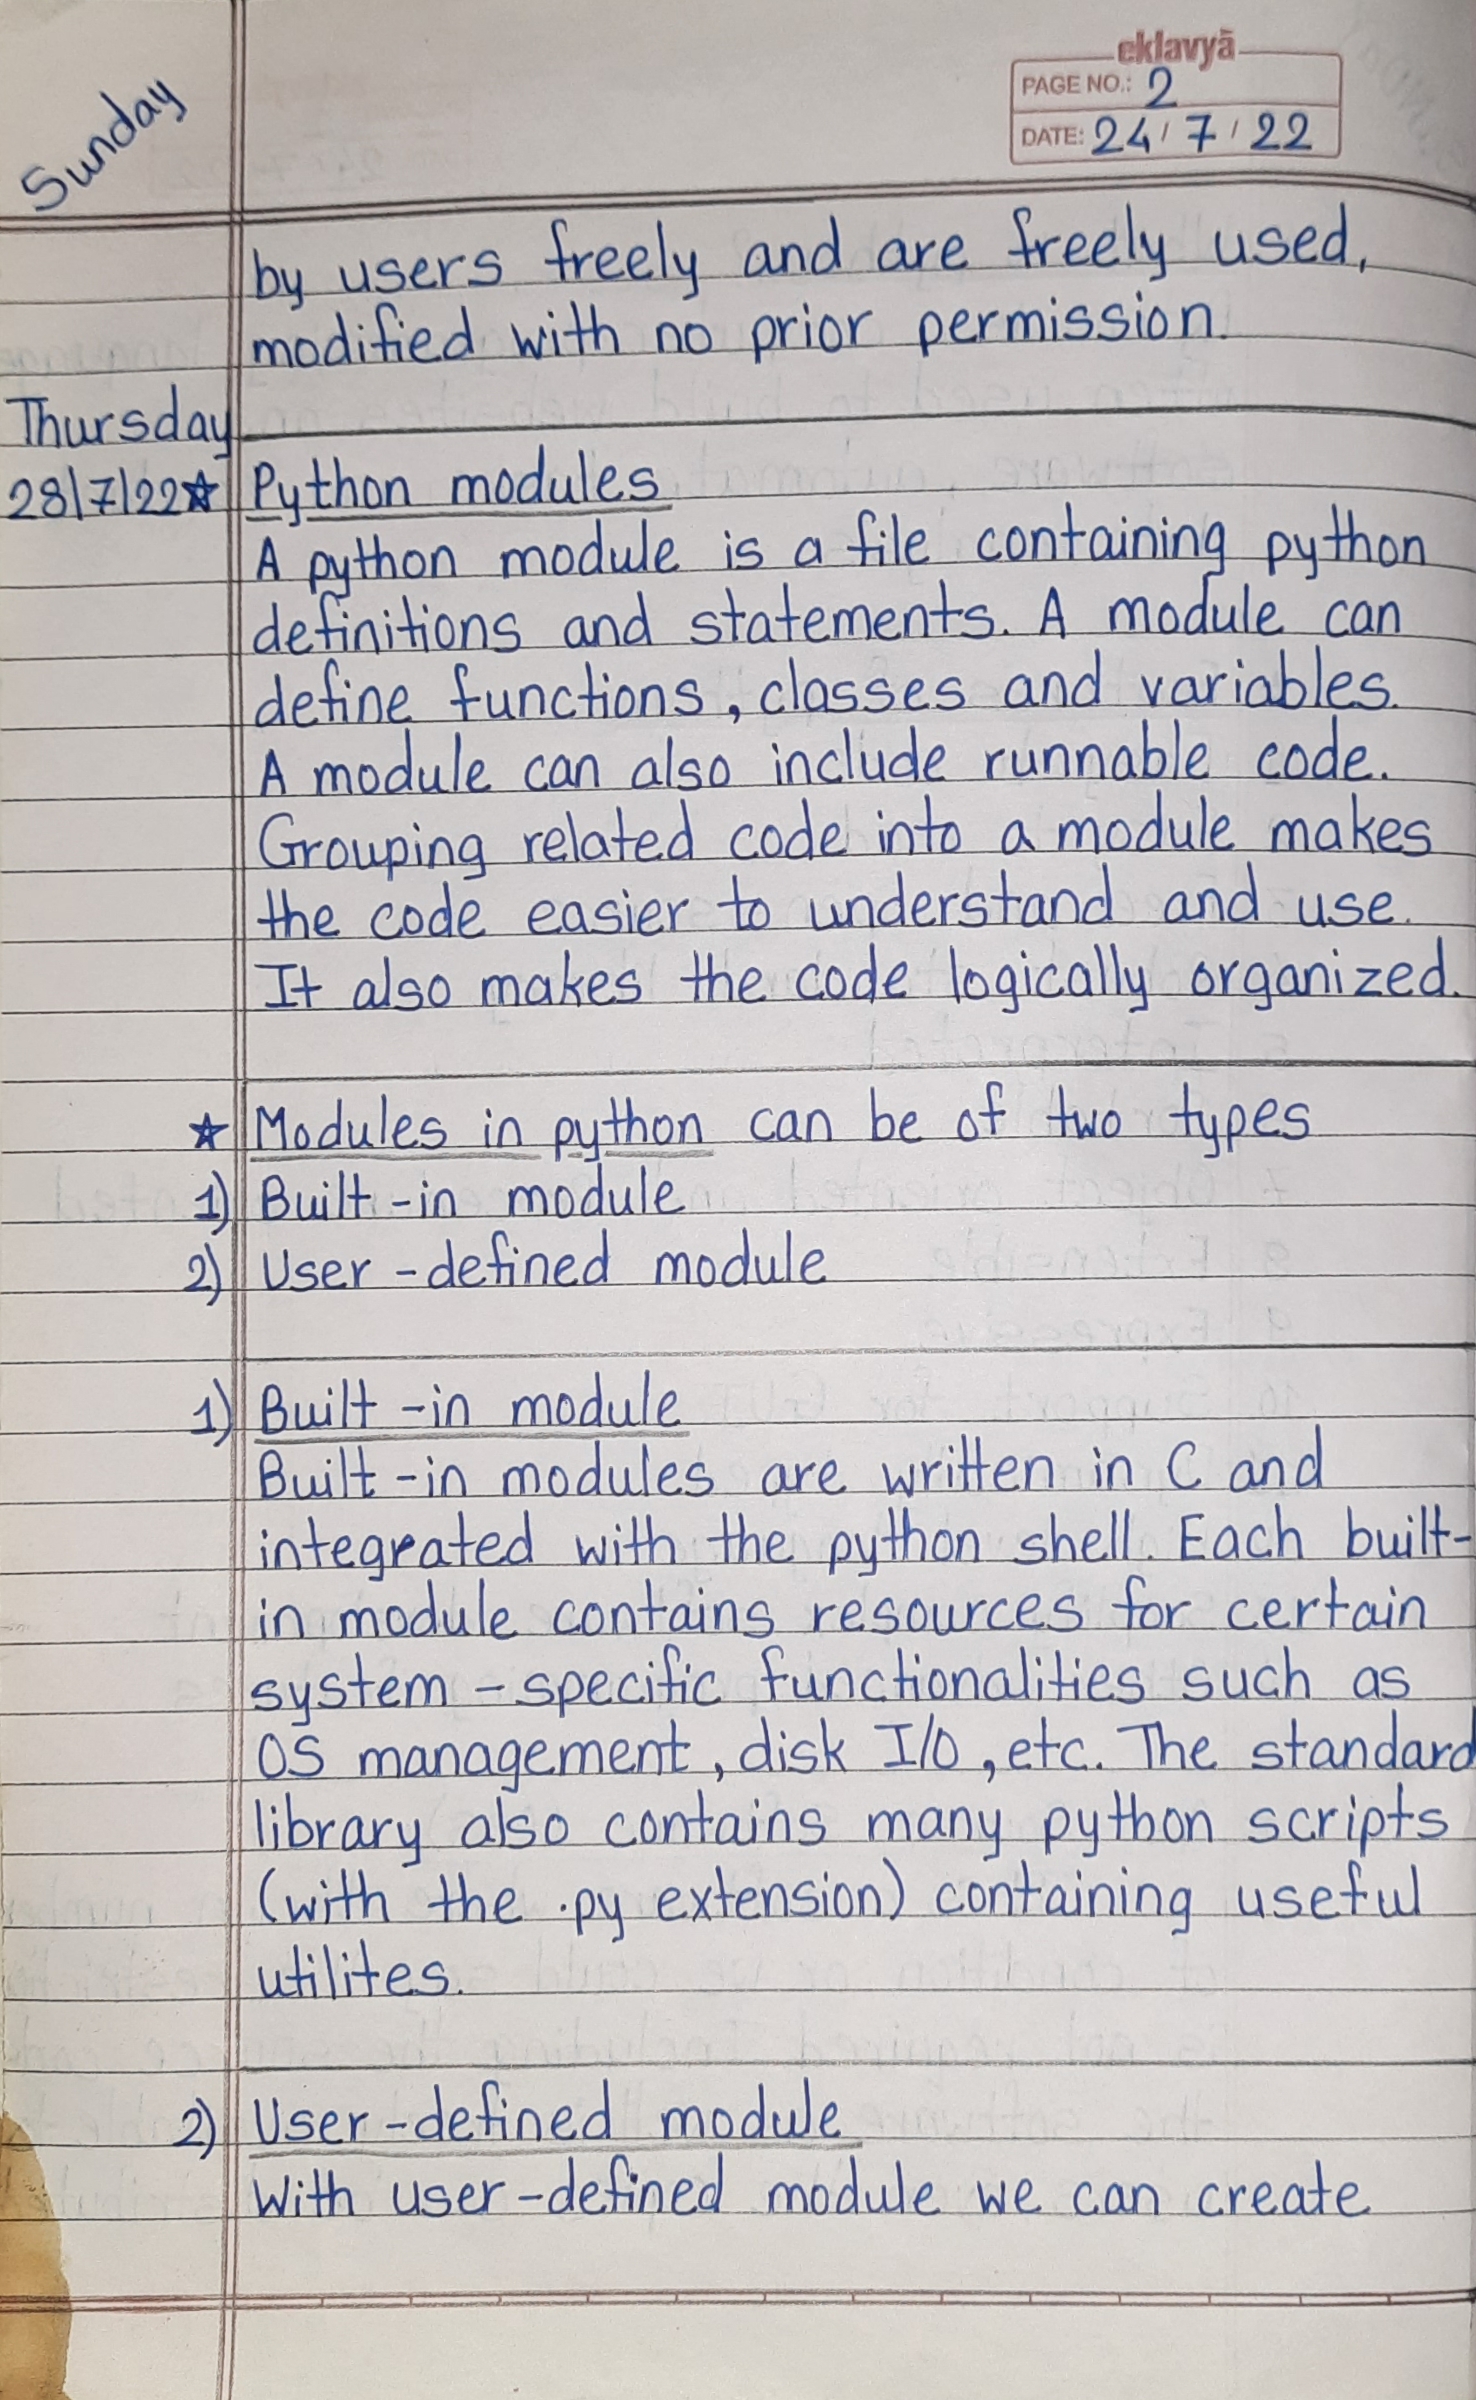 Sunday
eklavyā
PAGE NO.: 2
DATE: 24/7/22
by users freely and are freely used,
modified with no prior permission.
Thursday
28/7/22 ☆ Python modules
A python module is a file containing python
definitions and statements. A module can
define functions, classes and variables.
A module can also include runnable code.
Grouping related code into a module makes
the code easier to understand and use.
It also makes the code logically organized.
☆ Modules in python can be of two types
1) Built-in module
2) User-defined module
1) Built-in module
Built-in modules are written in C and
integrated with the python shell. Each built-
in module contains resources for certain
system-specific functionalities such as
OS management, disk I/O, etc. The standard
library also contains many python scripts
(with the .py extension) containing useful
utilites.
2) User-defined module
With user-defined module we can create